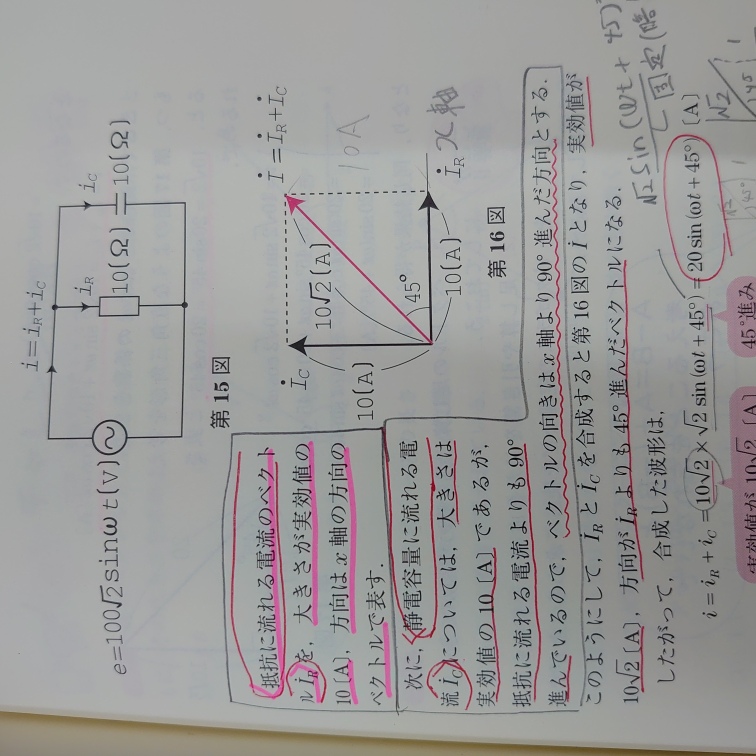 i = iR + iC
iC
iR
10(Ω)
10(Ω)
e=100√2sinωt(V)
第15図
İC
İ = İR + İC
10√2(A)
10(A)
45°
10(A)
İR
10A
x軸
第16図
抵抗に流れる電流のベクト
ルİRを，大きさが実効値の
10〔A〕，方向はx軸の方向の
ベクトルで表す．
次に，静電容量に流れる電
流İCについては，大きさは
実効値の10〔A〕であるが，
抵抗に流れる電流よりも90°
進んでいるので，ベクトルの向きはx軸より90°進んだ方向とする．
このようにして，İRとİCを合成すると第16図のİとなり，実効値が
10√2〔A〕，方向がİRよりも45°進んだベクトルになる．
したがって，合成した波形は，
√2 sin(ωt + 45)
固定
i = iR + iC = 10√2 × √2 sin(ωt + 45°) = 20 sin(ωt + 45°)〔A〕
√2
45
1
実効値が10√2〔A〕
45°進み